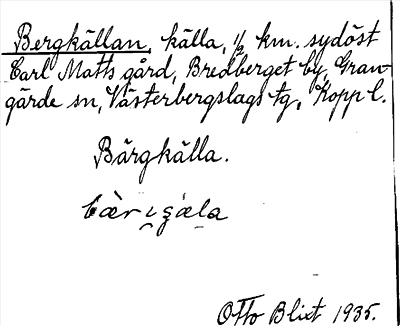 Bergkällan, källa, ½ km. sydöst
Carl Matts gård, Bredberget by, Gran-
gärde sn, Västerbergslags tg, Kopp l.
Bärgkälla.
Otto Blixt 1935.